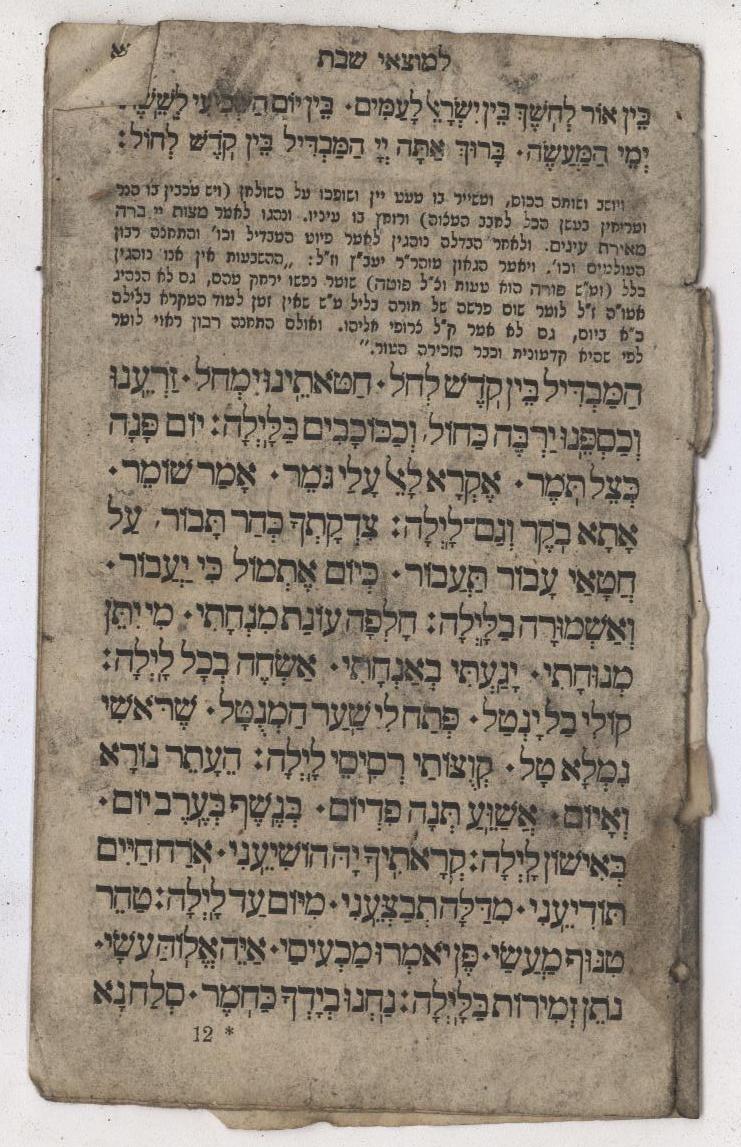 למוצאי שבת
בֵּין אוֹר לְחשֶׁךְ בֵּין יִשְׂרָאֵל לָעַמִּים· בֵּין יוֹם הַשְּׁבִיעִי לְשֵׁשֶׁת
יְמֵי הַמַּעֲשֶׂה· בָּרוּךְ אַתָּה יְיָ הַמַּבְדִּיל בֵּין קֹדֶשׁ לְחוֹל׃
ויושב ושותה הכוס, ומשייר בו מעט יין ושופכו על השולחן (ויש מכבין בו הנר
ומריחין בעשן הבל לחבב המצוה) ורוחץ בו עיניו. ונהגו לאמר מצות יי ברה
מאירת עינים. ולאחר הבדלה נוהגין לאמר פיוט המבדיל וכו' והתחנה רבון
העולמים וכו'. ויאמר הגאון מוהר״ר יעב״ץ וז״ל: „ההשבעות אין אנו נוהגין
כלל (ומ״ש פורה הוא טעות וצ״ל פוטה) שומר נפשו ירחק מהם, גם לא הנהיג
אמו״ה ז״ל לומר שום פרשה של תורה בליל מ״ש שאין זמן למוד המקרא בלילה
כ״א ביום, גם לא אמר ק״ל צרופי אליהו. ואולם התחנה רבון ראוי לומר
לפי שהיא קדמונית וכבר הזכירה הטור.”
הַמַּבְדִּיל בֵּין קֹדֶשׁ לְחֹל· חַטֹּאתֵינוּ יִמְחֹל· זַרְעֵנוּ
וְכַסְפֵּנוּ יַרְבֶּה כַּחוֹל, וְכַכּוֹכָבִים בַּלָּיְלָה׃ יוֹם פָּנָה
כְּצֵל תֹּמֶר· אֶקְרָא לָאֵל עָלַי גֹּמֵר· אָמַר שׁוֹמֵר·
אָתָא בֹקֶר וְגַם־לָיְלָה׃ צִדְקָתְךָ כְּהַר תָּבוֹר, עַל
חֲטָאַי עָבוֹר תַּעֲבוֹר· כְּיוֹם אֶתְמוֹל כִּי יַעֲבוֹר·
וְאַשְׁמוּרָה בַלָּיְלָה׃ חָלְפָה עוֹנַת מִנְחָתִי· מִי יִתֵּן
מְנוּחָתִי· יָגַעְתִּי בְאַנְחָתִי· אַשְׂחֶה בְכָל לָיְלָה׃
קוֹלִי בַּל יֻנְטַל· פְּתַח לִי שַׁעַר הַמְנֻטָּל· שֶׁרֹּאשִׁי
נִמְלָא טָל· קְוֻצּוֹתַי רְסִיסֵי לָיְלָה׃ הֵעָתֵר נוֹרָא
וְאָיוֹם· אֲשַׁוֵּעַ תְּנָה פִדְיוֹם· בְּנֶשֶׁף בְּעֶרֶב יוֹם·
בְּאִישׁוֹן לָיְלָה׃ קְרָאתִיךָ יָהּ הוֹשִׁיעֵנִי· אֹרַח חַיִּים
תּוֹדִיעֵנִי· מִדַּלָּה תְבַצְּעֵנִי· מִיּוֹם עַד לָיְלָה׃ טַהֵר
טִנּוּף מַעֲשַׂי· פֶּן יֹאמְרוּ מַכְעִיסַי· אַיֵּה אֱלוֹהַּ עֹשָׂי·
נֹתֵן זְמִירוֹת בַּלָּיְלָה׃ נַחְנוּ בְיָדְךָ כַּחֹמֶר· סְלַח נָא
12 *